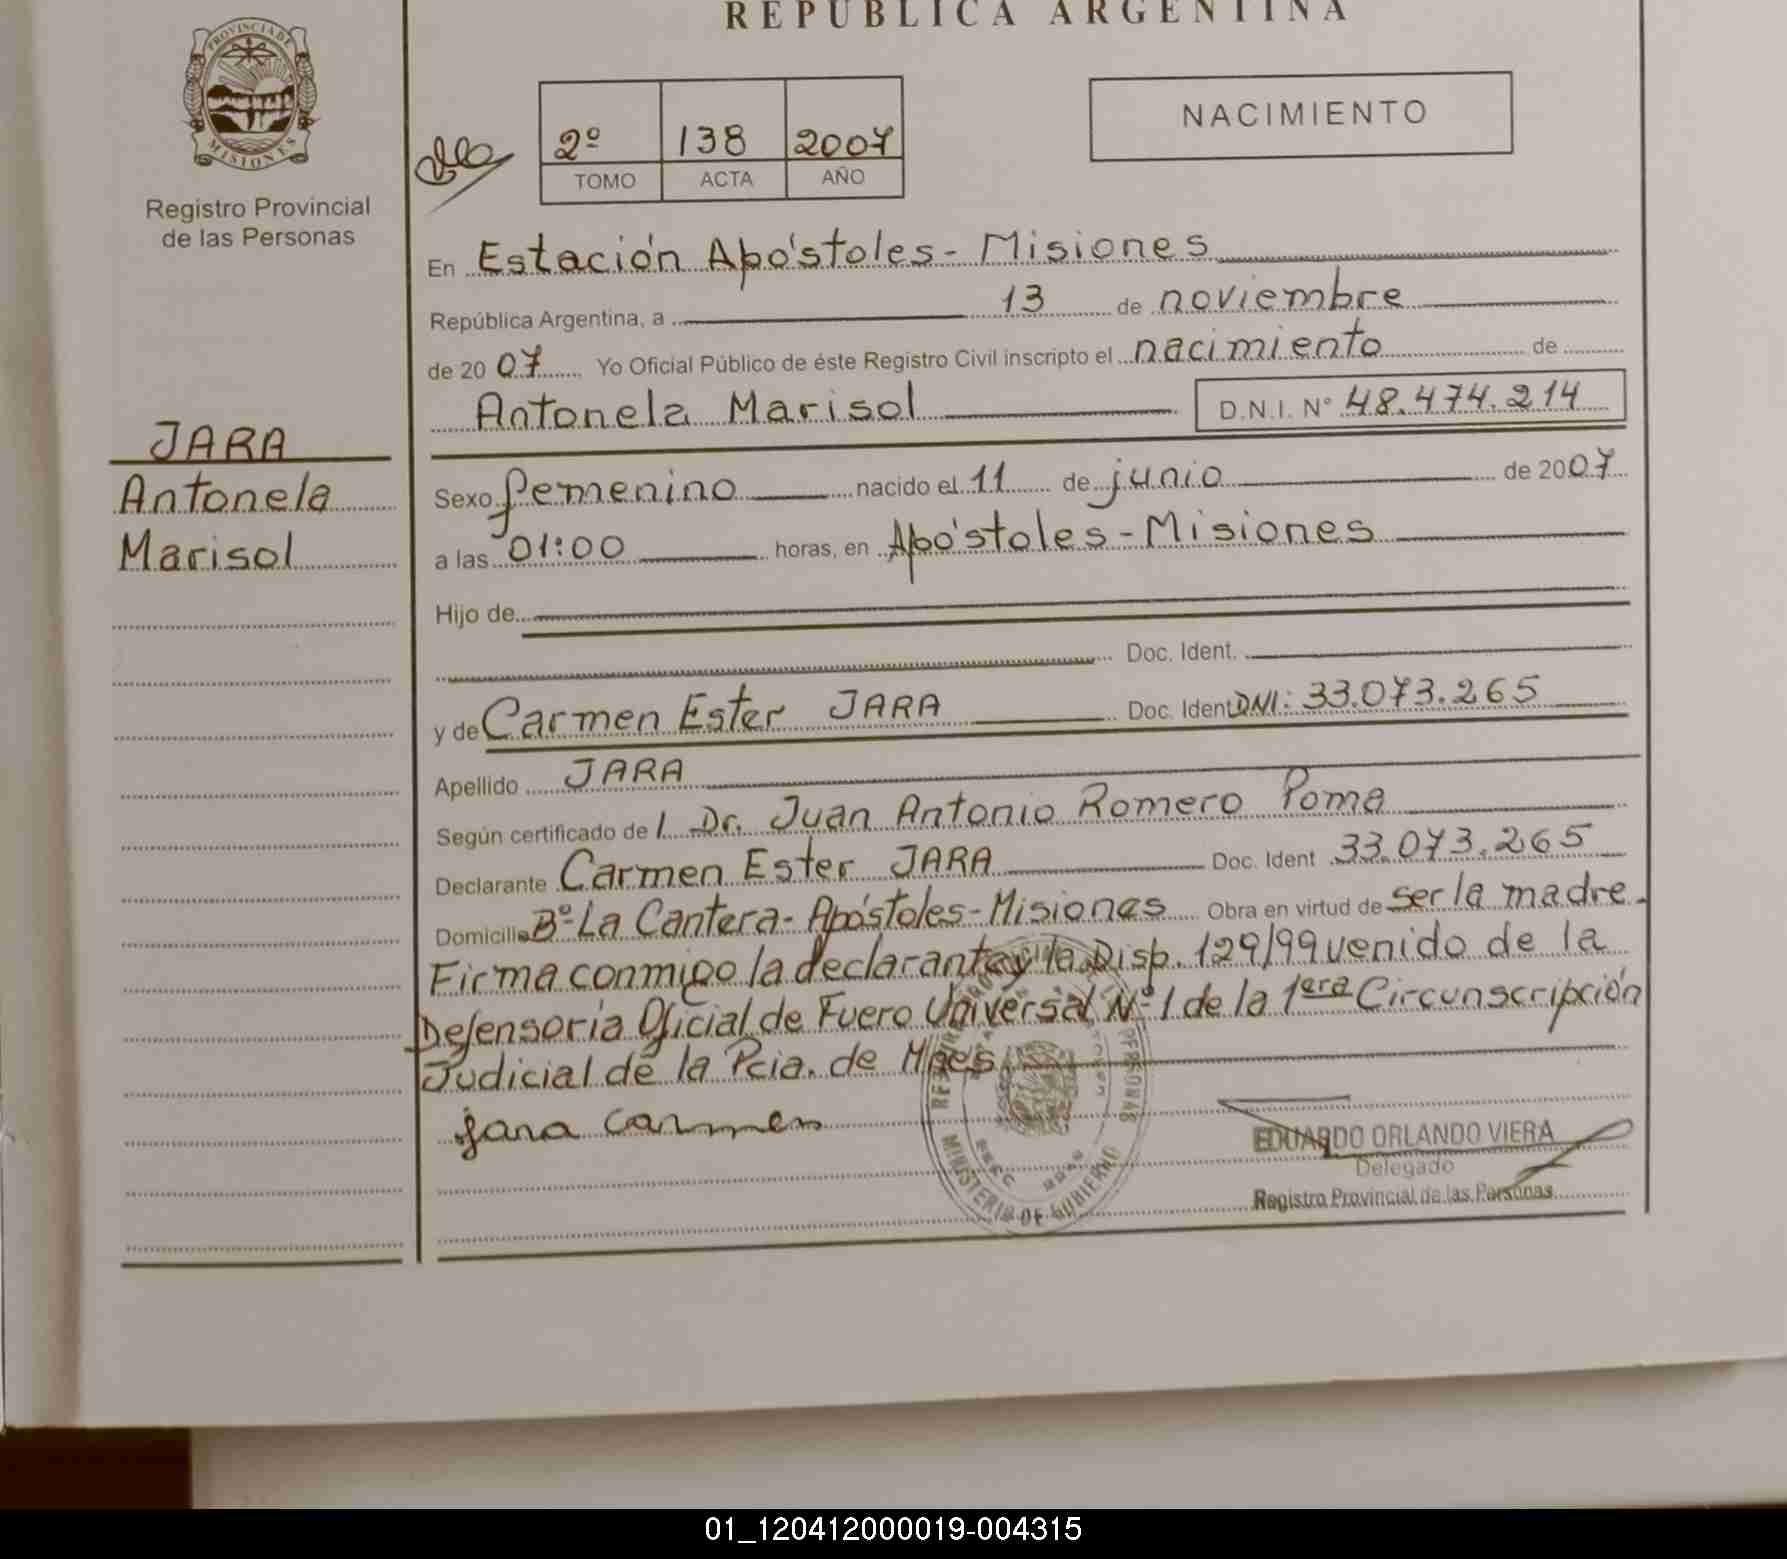 REPÚBLICA ARGENTINA
PROVINCIA DE
MISIONES
Registro Provincial
de las Personas
2º 138 2007
TOMO ACTA AÑO
NACIMIENTO
En Estación Apóstoles - Misiones
República Argentina, a 13 de noviembre
de 20 07 Yo Oficial Público de éste Registro Civil inscripto el nacimiento de
Antonela Marisol D.N.I. Nº 48.474.214
JARA
Antonela
Marisol
Sexo femenino nacido el 11 de junio de 2007
a las 01:00 horas, en Apóstoles - Misiones
Hijo de
Doc. Ident.
y de Carmen Ester JARA Doc. Ident DNI: 33.073.265
Apellido JARA
Según certificado de l Dr. Juan Antonio Romero Poma
Declarante Carmen Ester JARA Doc. Ident 33.073.265
Domicilio Bº La Cantera - Apóstoles - Misiones Obra en virtud de ser la madre.
Firma conmigo la declarante y la Disp. 129/99 venido de la
Defensoria Oficial de Fuero Universal Nº 1 de la 1era Circunscripción
Judicial de la Pcia. de Mnes
jara carmen
MINISTERIO DE GOBIERNO
EDUARDO ORLANDO VIERA
Delegado
Registro Provincial de las Personas
01_120412000019-004315